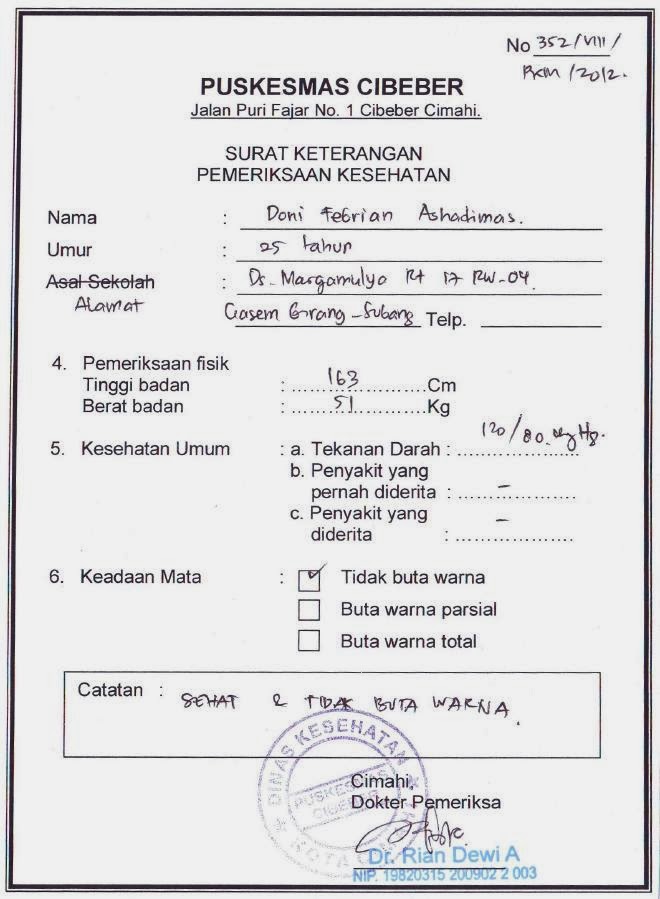 No 352/VIII/
PKM/2012.
PUSKESMAS CIBEBER
Jalan Puri Fajar No. 1 Cibeber Cimahi.
SURAT KETERANGAN
PEMERIKSAAN KESEHATAN
Nama : Doni Febrian Ashadimas.
Umur : 25 tahun
Asal Sekolah : Ds. Margamulyo Rt 17 RW-04
Alamat Girang-Subang Telp.
4. Pemeriksaan fisik
Tinggi badan : 163 Cm
Berat badan : 51 Kg
5. Kesehatan Umum : a. Tekanan Darah : 120/80 mmHg.
b. Penyakit yang
pernah diderita : -
c. Penyakit yang
diderita : -
6. Keadaan Mata : Tidak buta warna
Buta warna parsial
Buta warna total
Catatan : SEHAT & TIDAK BUTA WARNA.
DINAS KESEHATAN
PUSKESMAS
CIBEBER
KOTA CIMAHI
Cimahi,
Dokter Pemeriksa
Dr. Rian Dewi A
NIP. 19820315 200902 2 003